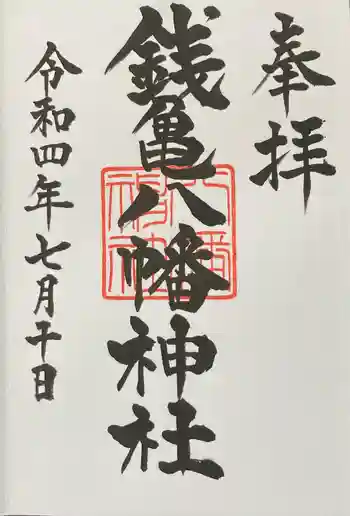 奉拝
銭亀八幡神社
令和四年七月二十日